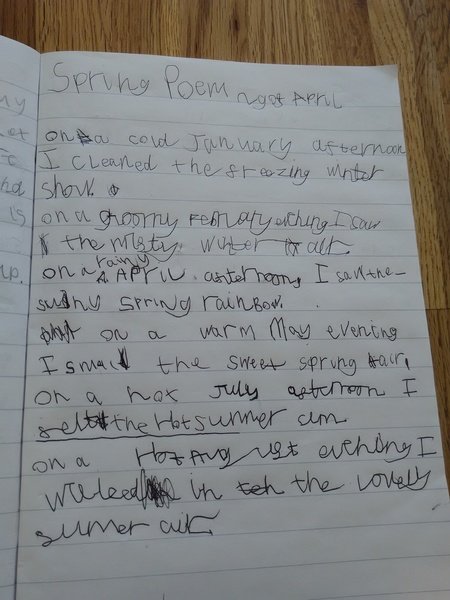 Spring Poem
April
on a cold January afternoon
I cleaned the freezing winter
show.
on a ghoomy evening I saw
the misty water air.
rainy
on a APRIL afternoon I saw the
suny spring rainbow.
on a warm May evening
I smell the sweet spring air,
on a hot July afternoon I
felt the Hot sumner
on a Hot August evening I
in the lovely
sumer air